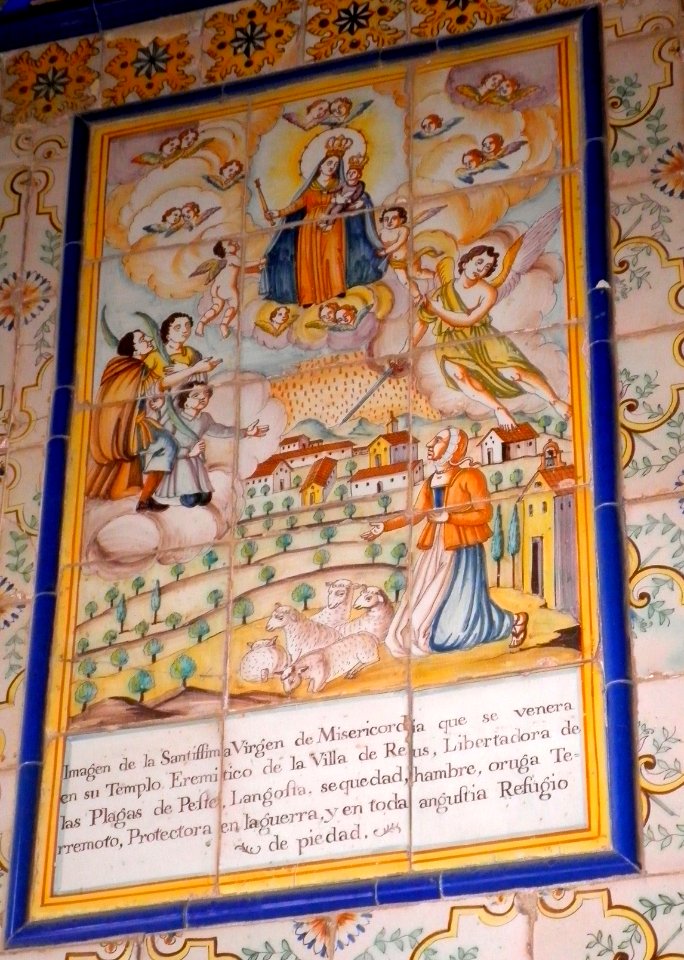 Imagen de la Santiſſima Virgen de Misericordia que se venera
en su Templo Eremitico de la Villa de Reus, Libertadora de
las Plagas de Peſte, Langoſta. sequedad, hambre, oruga Te=
rremoto, Protectora en la guerra, y en toda anguſtia Refugio
de piedad.